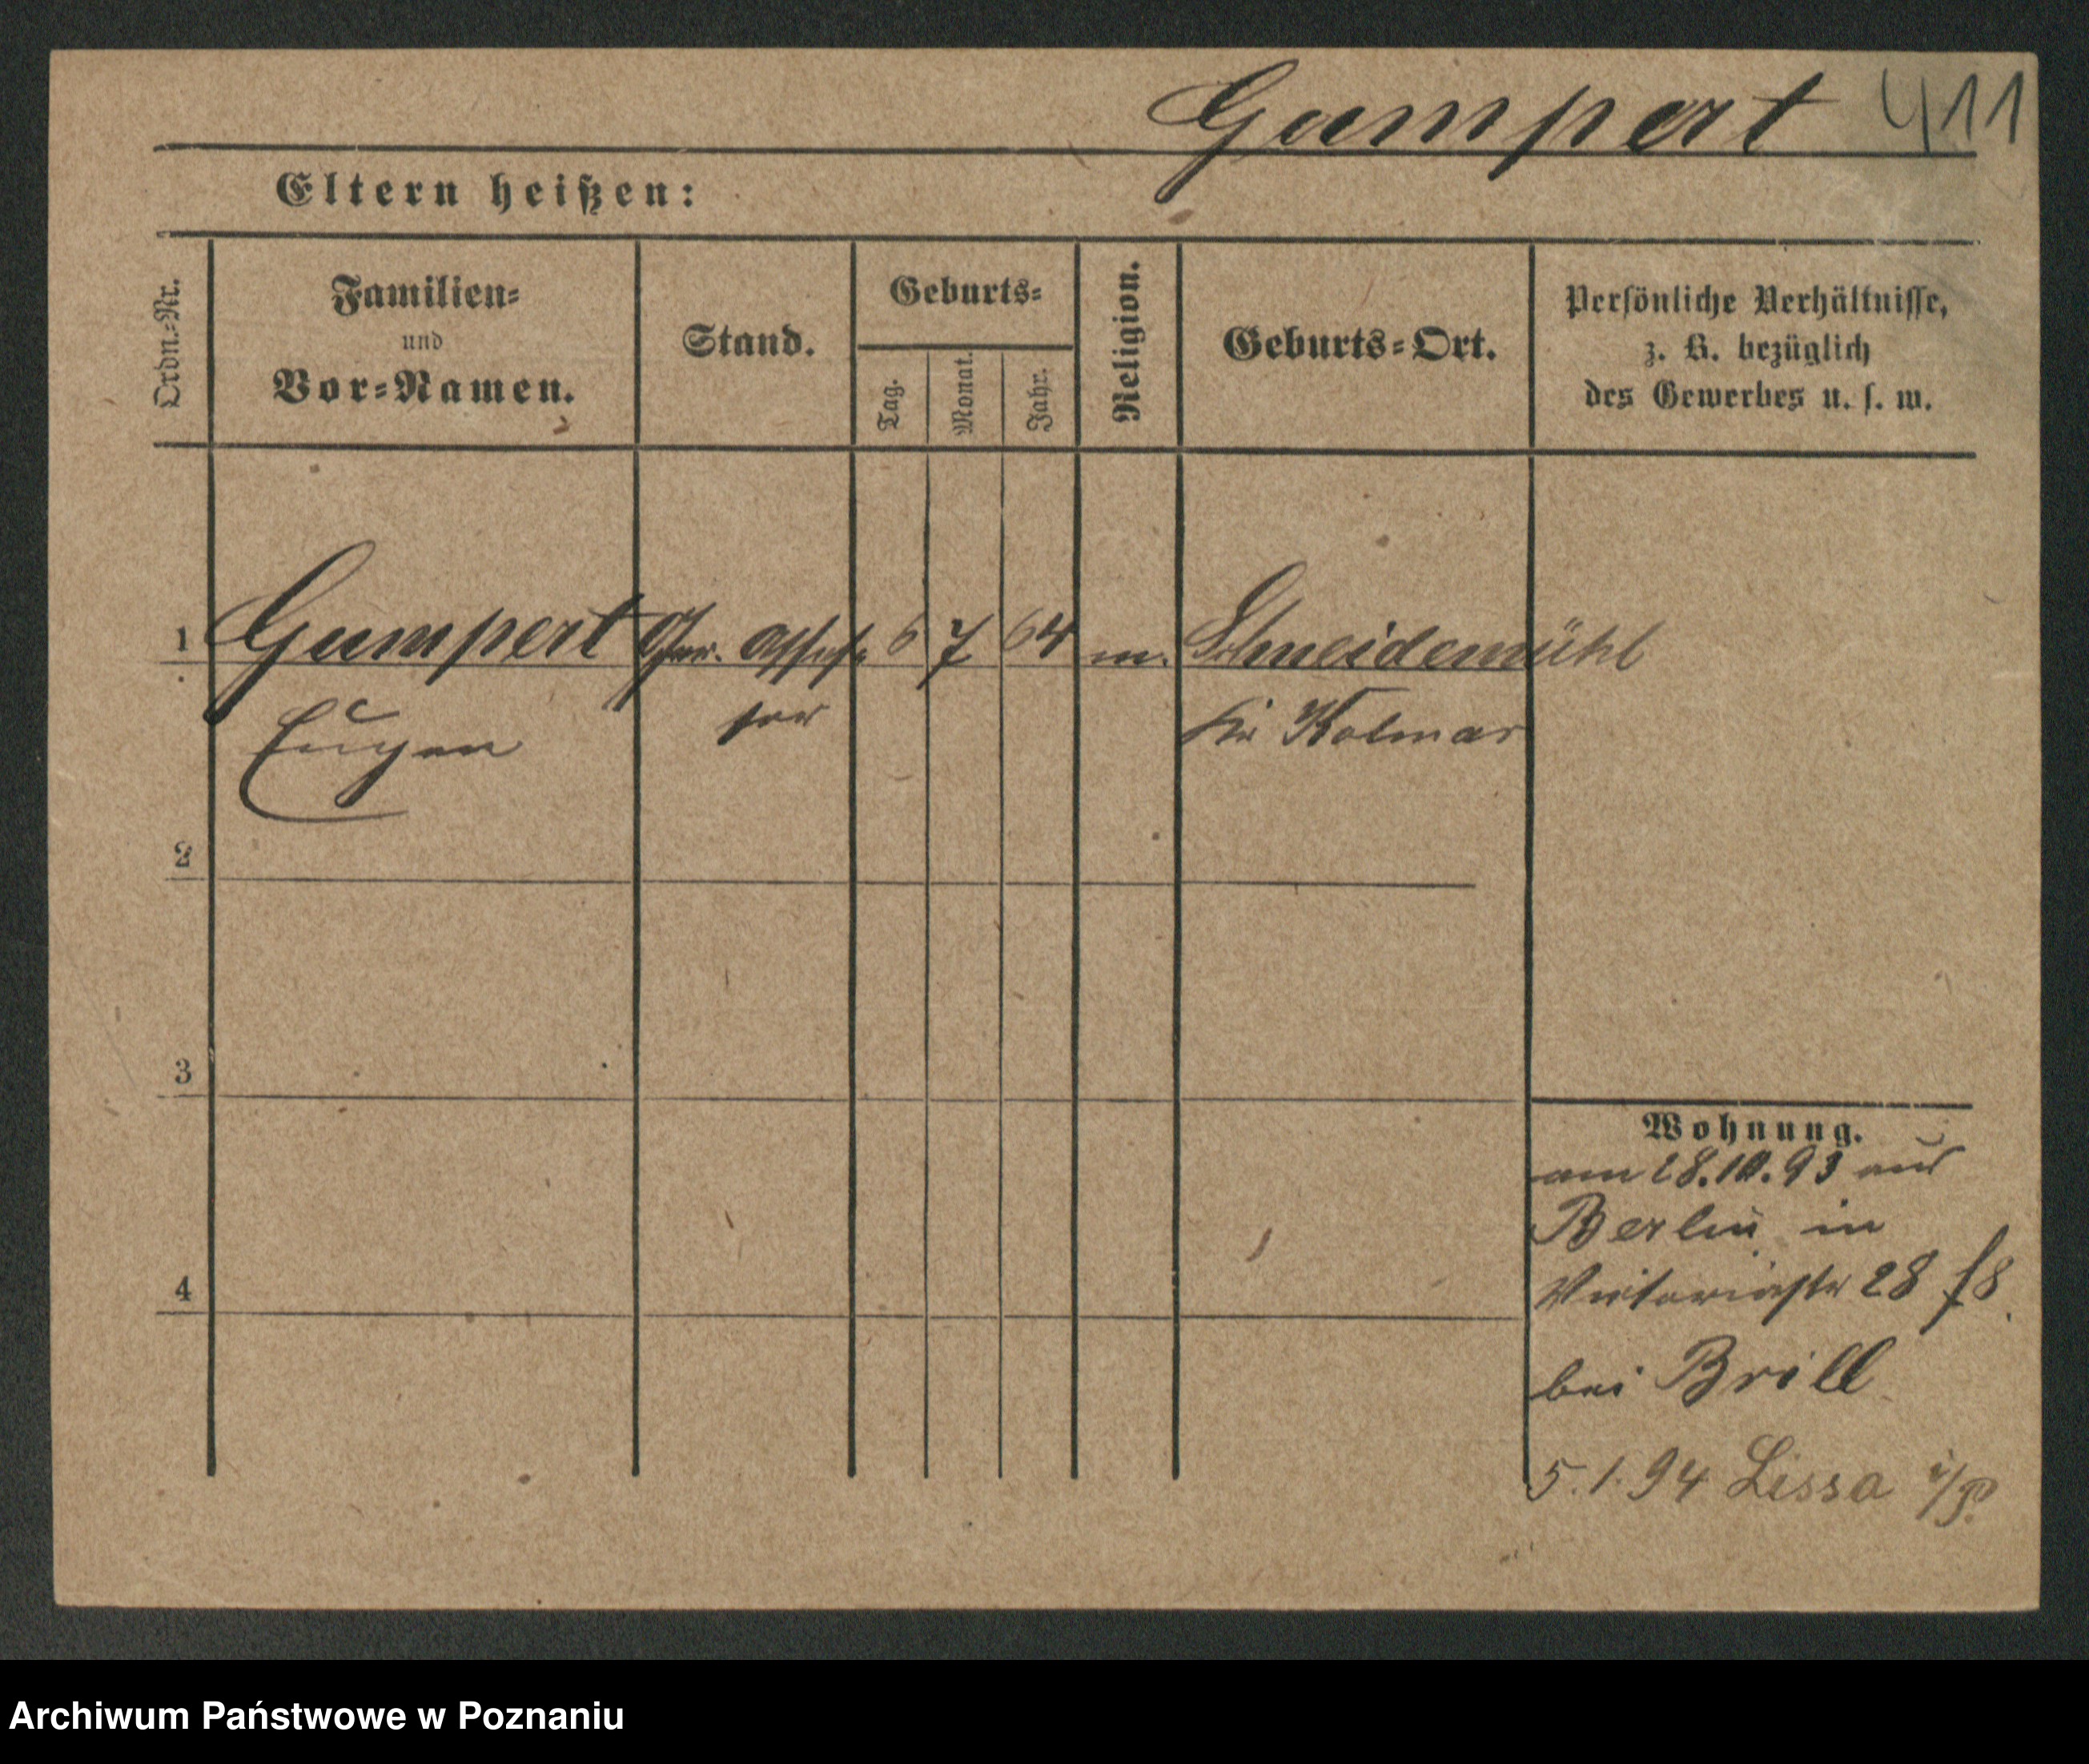 Gumpert 411
Eltern heißen:
Ordn.=Nr.
Familien=
und
Vor=Namen.
Stand.
Geburts=
Tag.
Monat.
Jahr.
Religion.
Geburts=Ort.
Persönliche Verhältnisse,
z. B. bezüglich
des Gewerbes u. s. w.
1 Gumpert Ger. Asses= 6 7 64 m. Schneidemühl
Eugen sor Kr Kolmar
2
3
4
Wohnung.
am 28.10.93 aus
Berlin in
Victoriastr 28
bei Brill
5.1.94 Lissa i/P.
Archiwum Państwowe w Poznaniu